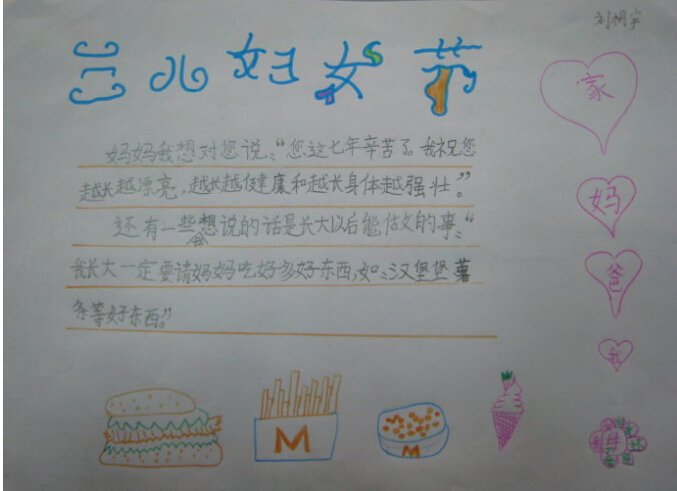 刘桐宇
三八妇女节
妈妈我想对您说:“您这七年辛苦了。我祝您
越长越漂亮,越长越健康和越长身体越强壮。”
还有一些想说的话是长大以后能做的事:“
我长大一定要请妈妈吃好多好东西,如:汉堡堡薯
条等好东西。”
家
妈
爸
我
M
M